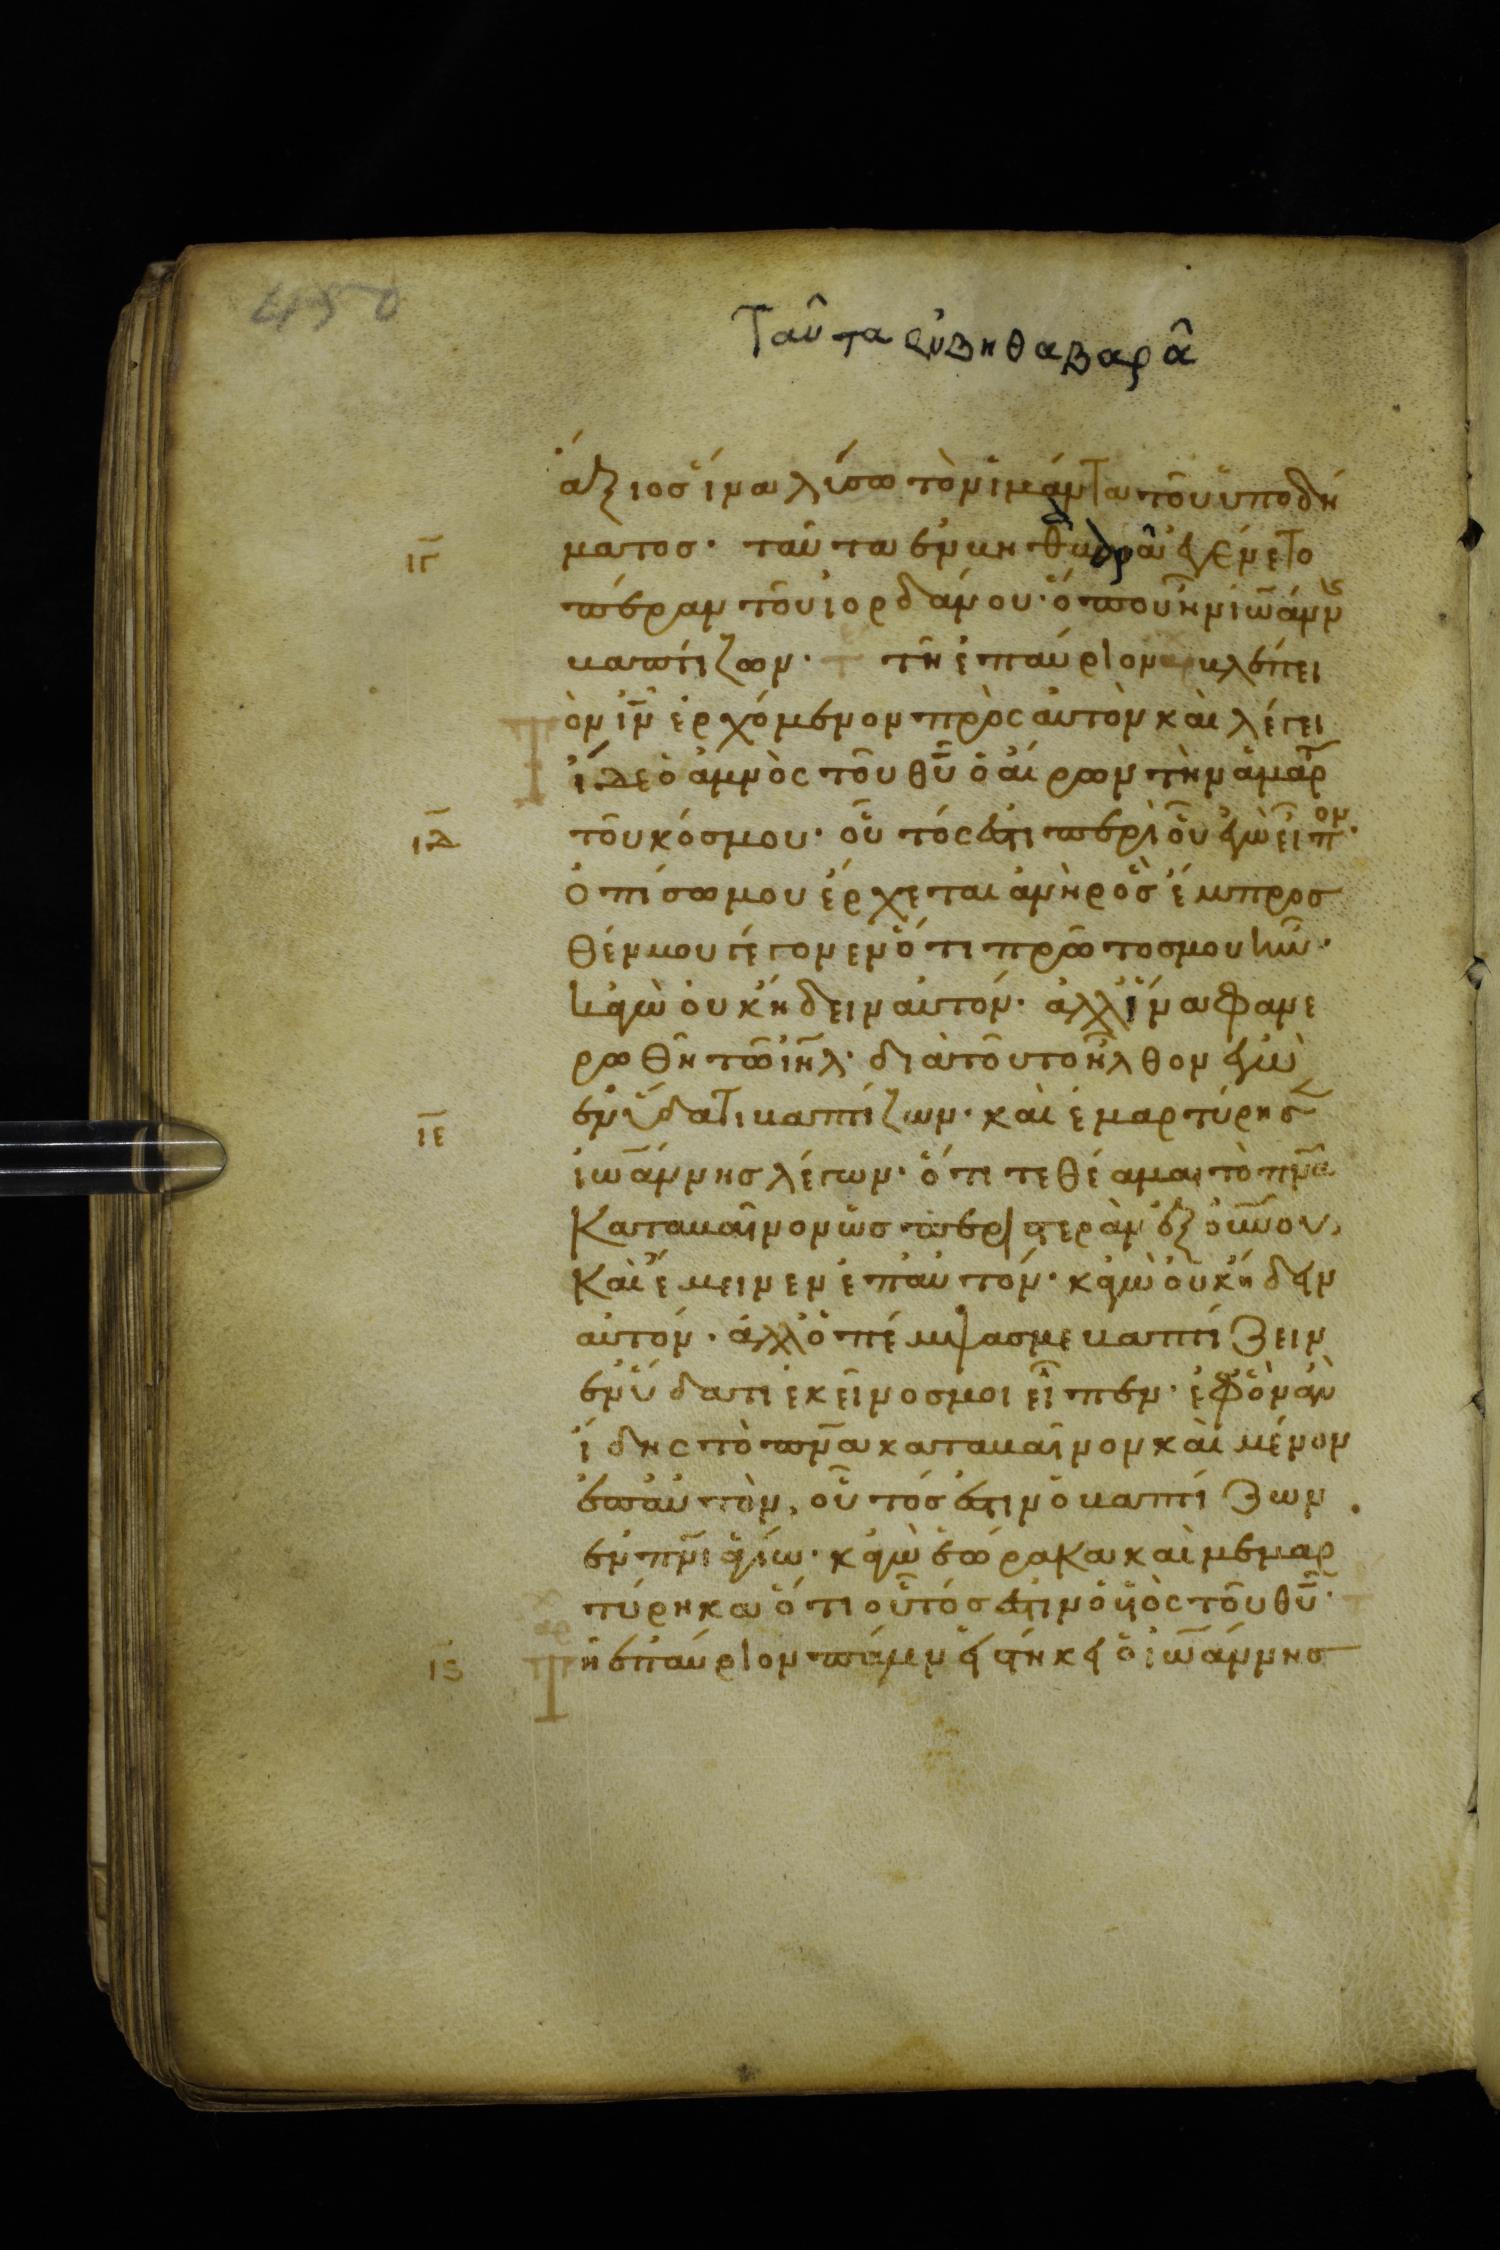 450
Ταῦτα ἐν βηθαβαρᾶ
ἄξιος ἵνα λύσω τὸν ἱμάντα τοῦ ὑποδή
ιγ
ματος· ταῦτα ἐν βηθαβαρᾶ ἐγένετο
πέραν τοῦ ἰορδάνου· ὅπου ἦν ἰωάνν
βαπτίζων· τῆ ἐπαύριον βλέπει
Τὸν ἰν ἐρχόμενον πρὸς αὐτὸν καὶ λέγει
ἴδε ὁ ἀμνὸς τοῦ θυ ὁ αἴρων τὴν ἁμαρτ
ιδ
τοῦ κόσμου· οὗτός ἐστι περὶ οὗ ἐγὼ εἶπον·
ὀπίσω μου ἔρχεται ἀνὴρ ὃς ἔμπροσ
θέν μου γέγονεν ὅτι πρῶτος μου ἦν·
κἀγὼ οὐκ ἤδειν αὐτόν· ἀλλ ἵνα φανε
ρωθῆ τῶ ιηλ· διὰ τοῦτο ἦλθον ἐγὼ
ιε
ἐν ὕδατι βαπτίζων· καὶ ἐμαρτύρησ
ἰωάννης λέγων· ὅτι τεθέαμαι τὸ πνα
Καταβαῖνον ὡς περιστερὰν ἐξ οὐνου,
Καὶ ἔμεινεν ἐπ αὐτόν· κἀγὼ οὐκ ἤδειν
αὐτόν· ἀλλ ὁ πέμψας με βαπτίζειν
ἐν ὕδατι ἐκεῖνος μοι εἶπεν· ἐφ ὃν ἂν
ἴδης τὸ πνα καταβαῖνον καὶ μένον
ἐπ αὐτὸν, οὗτός ἐστιν ὁ βαπτίζων
ἐν πνι ἁγίω· κἀγὼ ἑώρακα καὶ μεμαρ
τύρηκα ὅτι οὗτός ἐστιν ὁ υἱὸς τοῦ θυ·
ις
Τῆ ἐπαύριον πάλιν εἱστήκει ὁ ἰωάννης